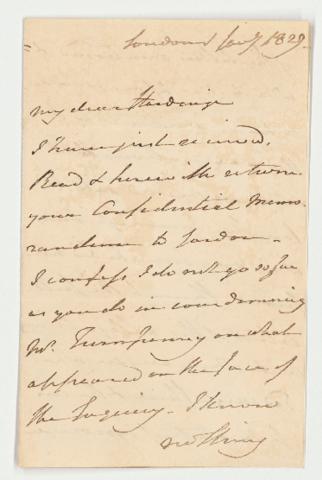 London Jany 1829.
My dear Hardinge
I have just received,
Read & herewith return
your Confidential Memo-
randum to Gordon -
I confess I do not go so far
as you do in condemning
Mr. Turnpenny on what
appeared on the face of
the Inquiry. I know
nothing